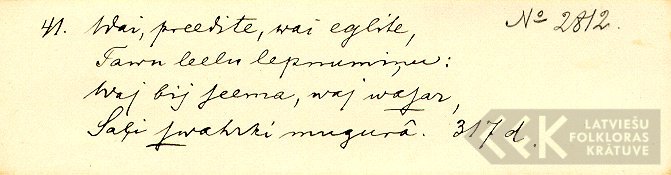 41. Wai, preedite, wai eglite, № 2812.
Tawu leelu lepnumiņu:
Waj bij seema, waj wasar,
Saļi swahrki mugurâ. 317 d.
LATVIEŠU
FOLKLORAS
KRĀTUVE